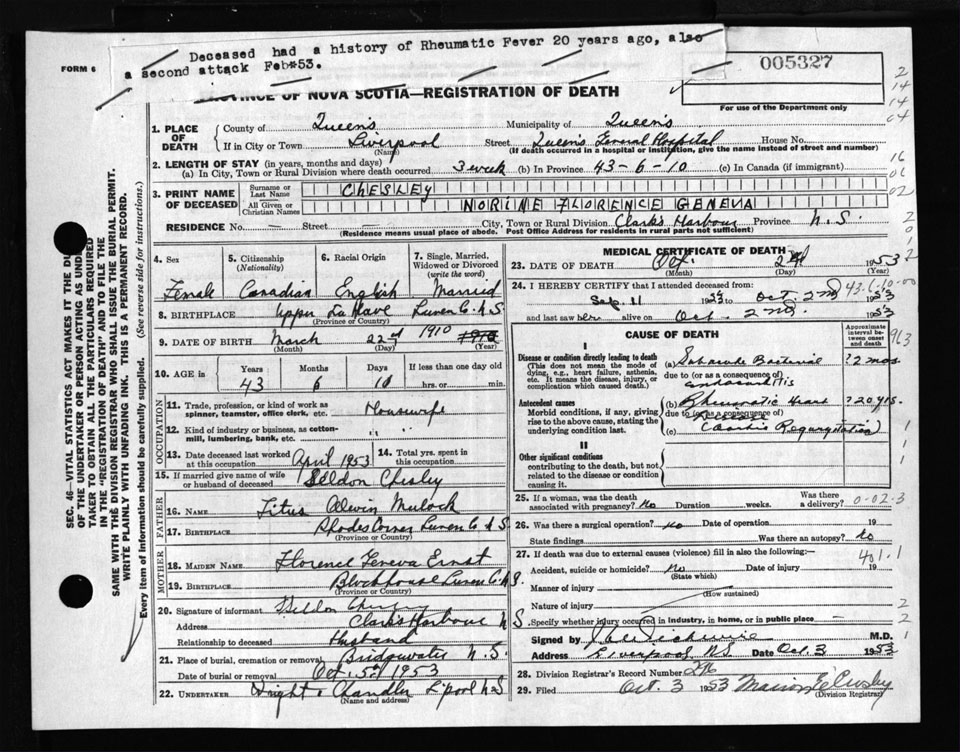 Deceased had a history of Rheumatic Fever 20 years ago, also
a second attack Feb#53.
FORM 6
005327
PROVINCE OF NOVA SCOTIA—REGISTRATION OF DEATH
For use of the Department only
2
14
14
04
16
06
02
2
0
1
2
SEC. 46—VITAL STATISTICS ACT MAKES IT THE DU
OF THE UNDERTAKER OR PERSON ACTING AS UNDER
TAKER TO OBTAIN ALL THE PARTICULARS REQUIRED
IN THE "REGISTRATION OF DEATH" AND TO FILE THE
SAME WITH THE DIVISION REGISTRAR WHO SHALL ISSUE THE BURIAL PERMIT.
WRITE PLAINLY WITH UNFADING INK. THIS IS A PERMANENT RECORD.
Every item of information should be carefully supplied. (See reverse side for instructions.)
1. PLACE OF DEATH
County of Queen's Municipality of Queen's
If in City or Town Liverpool Street Queen's General Hospital House No.
(Name) (If death occurred in a hospital or institution, give the name instead of street and number)
2. LENGTH OF STAY (in years, months and days)
(a) In City, Town or Rural Division where death occurred 3 week (b) In Province 43-6-10 (c) In Canada (if immigrant)
3. PRINT NAME OF DECEASED
Surname or Last Name CHESLEY
All Given or Christian Names NORINE FLORENCE GENEVA
RESIDENCE No. — Street — City, Town or Rural Division Clark's Harbour Province N.S.
(Residence means usual place of abode. Post Office Address for residents in rural parts not sufficient)
4. Sex Female
5. Citizenship (Nationality) Canadian
6. Racial Origin English
7. Single, Married, Widowed or Divorced (write the word) Married
8. BIRTHPLACE Upper La Have Lunen Co. N.S.
(Province or Country)
9. DATE OF BIRTH March 22nd 1910
(Month) (Day) (Year)
10. AGE in Years Months Days If less than one day old
43 6 10 hrs. or min.
OCCUPATION
11. Trade, profession, or kind of work as spinner, teamster, office clerk, etc. Housewife
12. Kind of industry or business, as cotton-mill, lumbering, bank, etc. " "
13. Date deceased last worked at this occupation April 1953
14. Total yrs. spent in this occupation
15. If married give name of wife or husband of deceased Seldon Chesley
FATHER
16. Name Titus Alwin Mulock
17. Birthplace Rhodes Corner Lunen Co. N.S.
(Province or Country)
MOTHER
18. Maiden Name Florence Geneva Ernst
19. Birthplace Blockhouse Lunen Co. N.S.
(Province or Country)
20. Signature of informant Seldon
Address Clarks Harbour N.S.
Relationship to deceased Husband
21. Place of burial, cremation or removal Bridgewater N.S.
Date of burial or removal Oct. 5th 1953
22. UNDERTAKER Wright & Chandler L'pool N.S.
(Name and address)
MEDICAL CERTIFICATE OF DEATH
23. DATE OF DEATH Oct. 2nd 1953
(Month) (Day) (Year)
24. I HEREBY CERTIFY that I attended deceased from:
Sep. 11 1953 to Oct. 2nd 1953
43-6-10-00
and last saw her alive on Oct. 2nd. 1953
CAUSE OF DEATH
Approximate interval between onset and death
I
Disease or condition directly leading to death
(This does not mean the mode of dying, e.g., heart failure, asthenia, etc. It means the disease, injury, or complication which caused death.)
(a) Subacute Bacterial ? 2 mos
due to (or as a consequence of)
endocarditis
Antecedent causes
Morbid conditions, if any, giving rise to the above cause, stating the underlying condition last.
(b) Rheumatic Heart ? 20 yrs.
due to (or as a consequence of)
Disease
(c) (Aortic Regurgitation)
II
Other significant conditions
contributing to the death, but not related to the disease or condition causing it.
25. If a woman, was the death associated with pregnancy? No Duration weeks. Was there a delivery?
0-02-3
26. Was there a surgical operation? No Date of operation 19
State findings Was there an autopsy? No
27. If death was due to external causes (violence) fill in also the following:—
401.1
Accident, suicide or homicide? No Date of injury 19
(State which)
Manner of injury
(How sustained)
Nature of injury
Specify whether injury occurred in industry, in home, or in public place —
Signed by M.D.
Address Liverpool, N.S. Date Oct. 3 1953
28. Division Registrar's Record Number
29. Filed Oct. 3 1953 Marion E. Crosby
(Division Registrar)